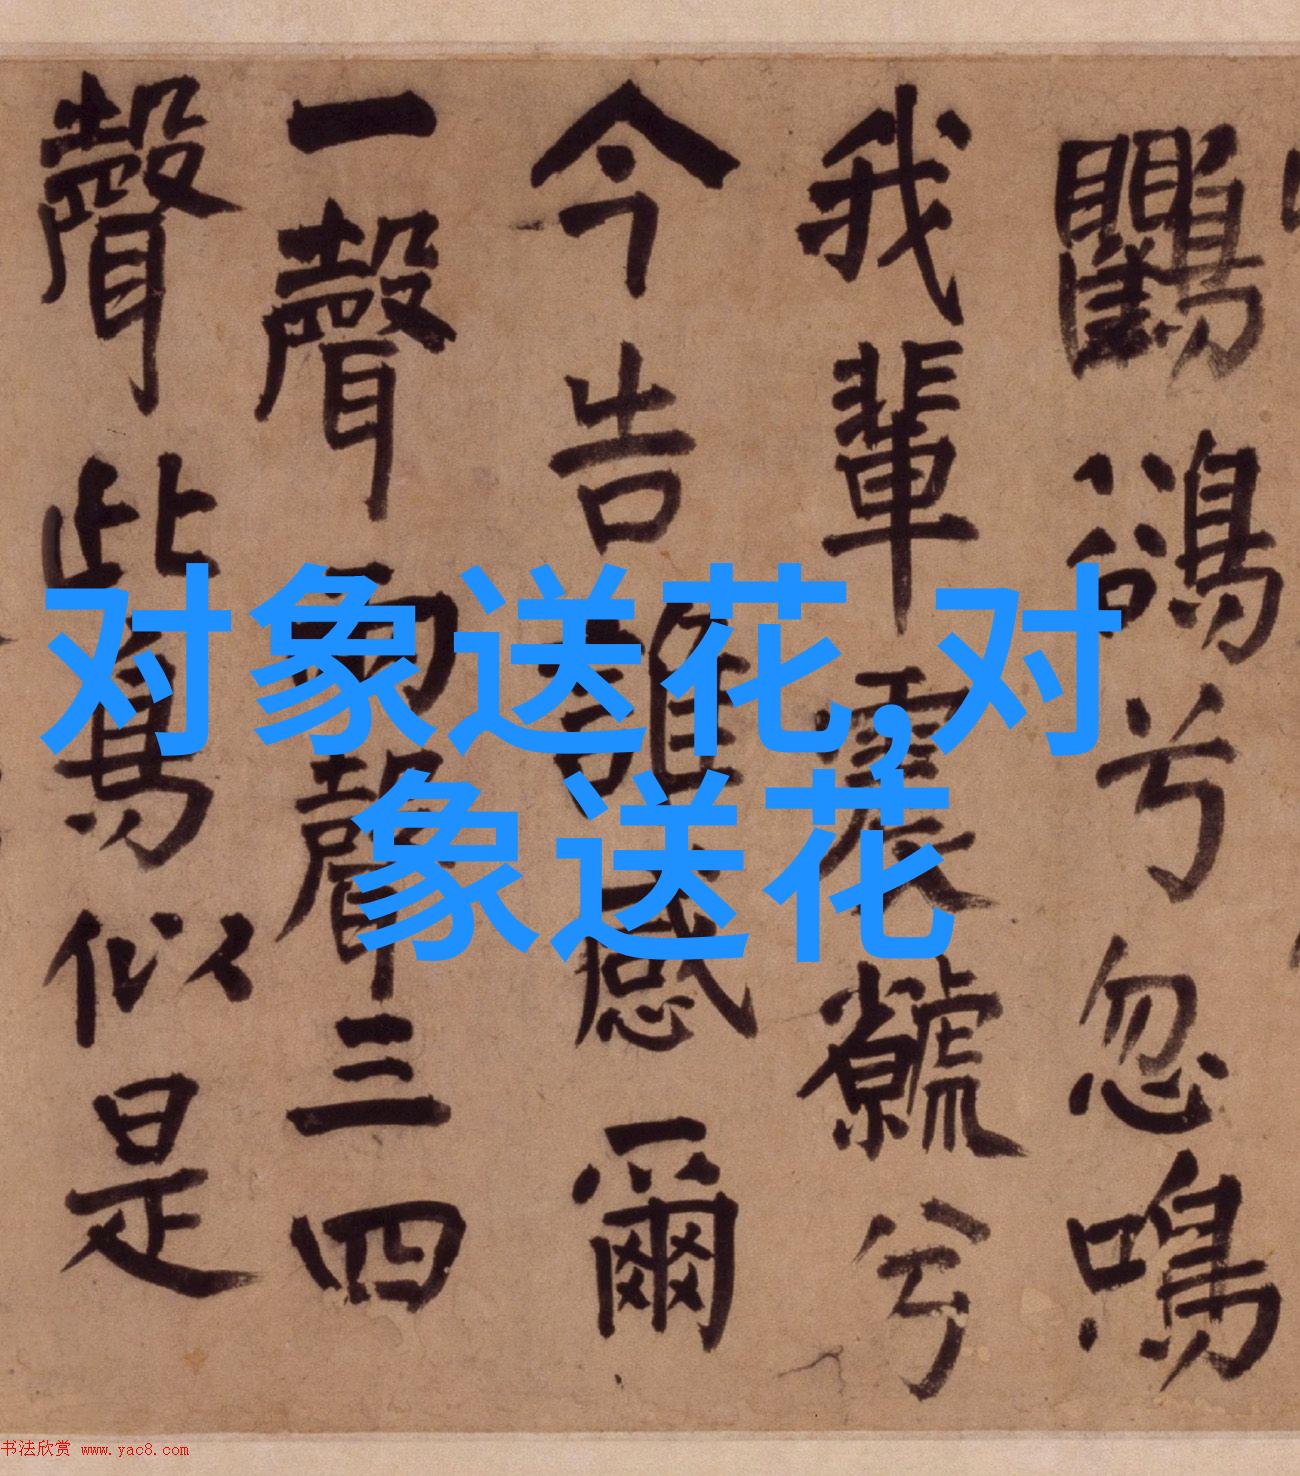 鸜鵒兮忽鳴
我輩震兮
今告誰感爾
一聲兩聲三四
聲此鳥似是
对象送花,对
象送花
书法欣赏 www.yac8.com